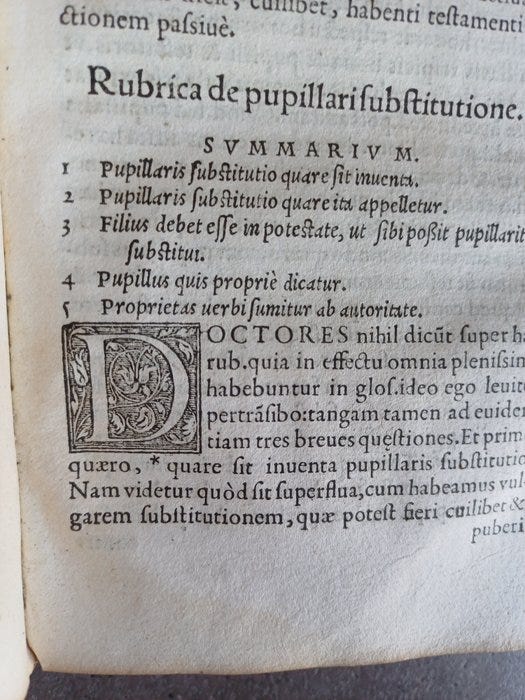 cuilibet, habenti testamenti
ctionem passiuè.
Rubrica de pupillari substitutione.
SVMMARIVM.
1 Pupillaris substitutio quare sit inuenta.
2 Pupillaris substitutio quare ita appelletur.
3 Filius debet esse in potestate, ut sibi poßit pupillarit
substitui.
4 Pupillus quis propriè dicatur.
5 Proprietas uerbi sumitur ab autoritate.
DOCTORES nihil dicūt super ha
rub. quia in effectu omnia plenissim
habebuntur in glos. ideo ego leuit
pertrāsibo: tangam tamen ad euiden
tiam tres breues quęstiones. Et prim
quæro, * quare sit inuenta pupillaris substitutio
Nam videtur quòd sit superflua, cum habeamus vul
garem substitutionem, quæ potest fieri cuilibet &
puberi